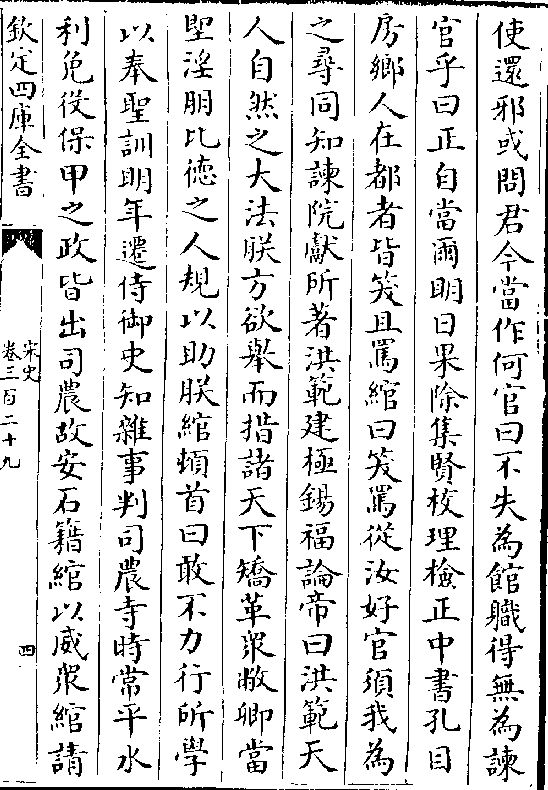 使還邪或問君今當作何官曰不失為館職得無為諫
官乎曰正自當爾明日果除集賢校理檢正中書孔目
房鄉人在都者皆笑且罵綰曰笑罵從汝好官須我為
之尋同知諫院獻所著洪範建極錫福論帝曰洪範天
人自然之大法朕方欲舉而措諸天下矯革衆敝卿當
堲淫朋比德之人規以助朕綰頓首曰敢不力行所學
以奉聖訓明年遷侍御史知雜事判司農寺時常平水
利免役保甲之政皆出司農故安石籍綰以威衆綰請
欽定四庫全書
宋史
卷三百二十九
四